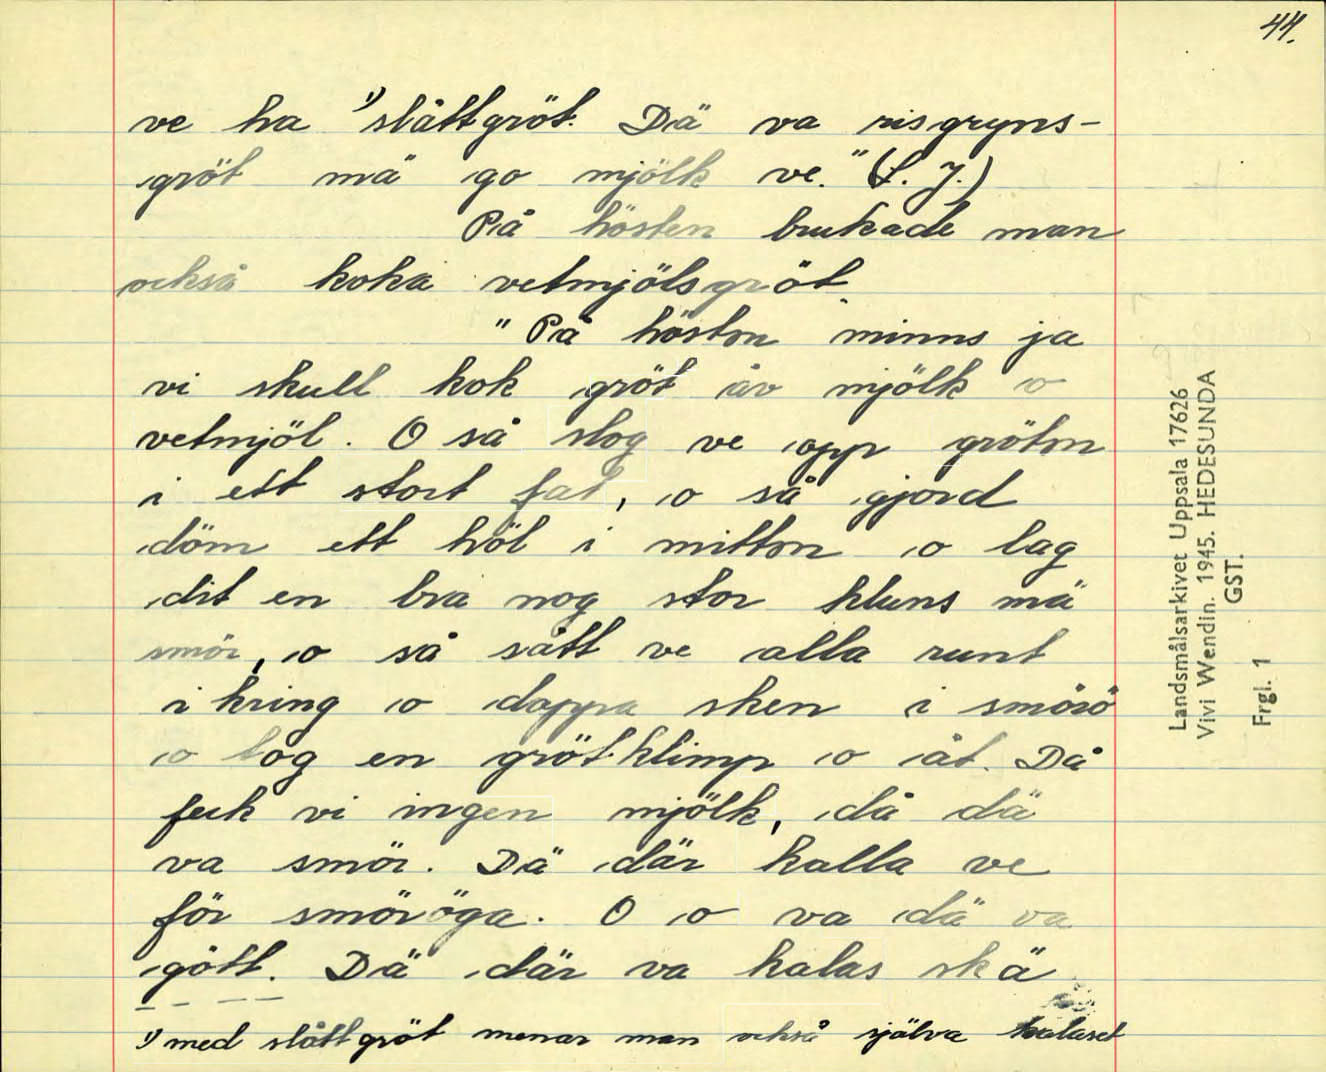 44.
ve ha ¹⁾slåttgröt. Dä va risgryns-
gröt mä go mjölk ve." (L. J.)
På hösten brukade man
också koka vetmjölsgröt
"På höstn minns ja
vi skull kok gröt åv mjölk o
vetmjöl. O så slog ve opp grötn
i ett stort fat, o så gjord
döm ett höl i mittn o lag
dit en bra nog stor kluns mä
smör, o så sått ve alla runt
ikring o doppa sken i smörö
o tog en grötklimp o åt. Då
feck vi ingen mjölk, då dä
va smör. Dä där kalla ve
för smöröga. O o va dä va
gött. Dä där va kalas skä
¹⁾ med slåttgröt menar man också själva kalaset
Landsmålsarkivet Uppsala 17626
Vivi Wendin. 1945. HEDESUNDA
GST.
Frgl. 1